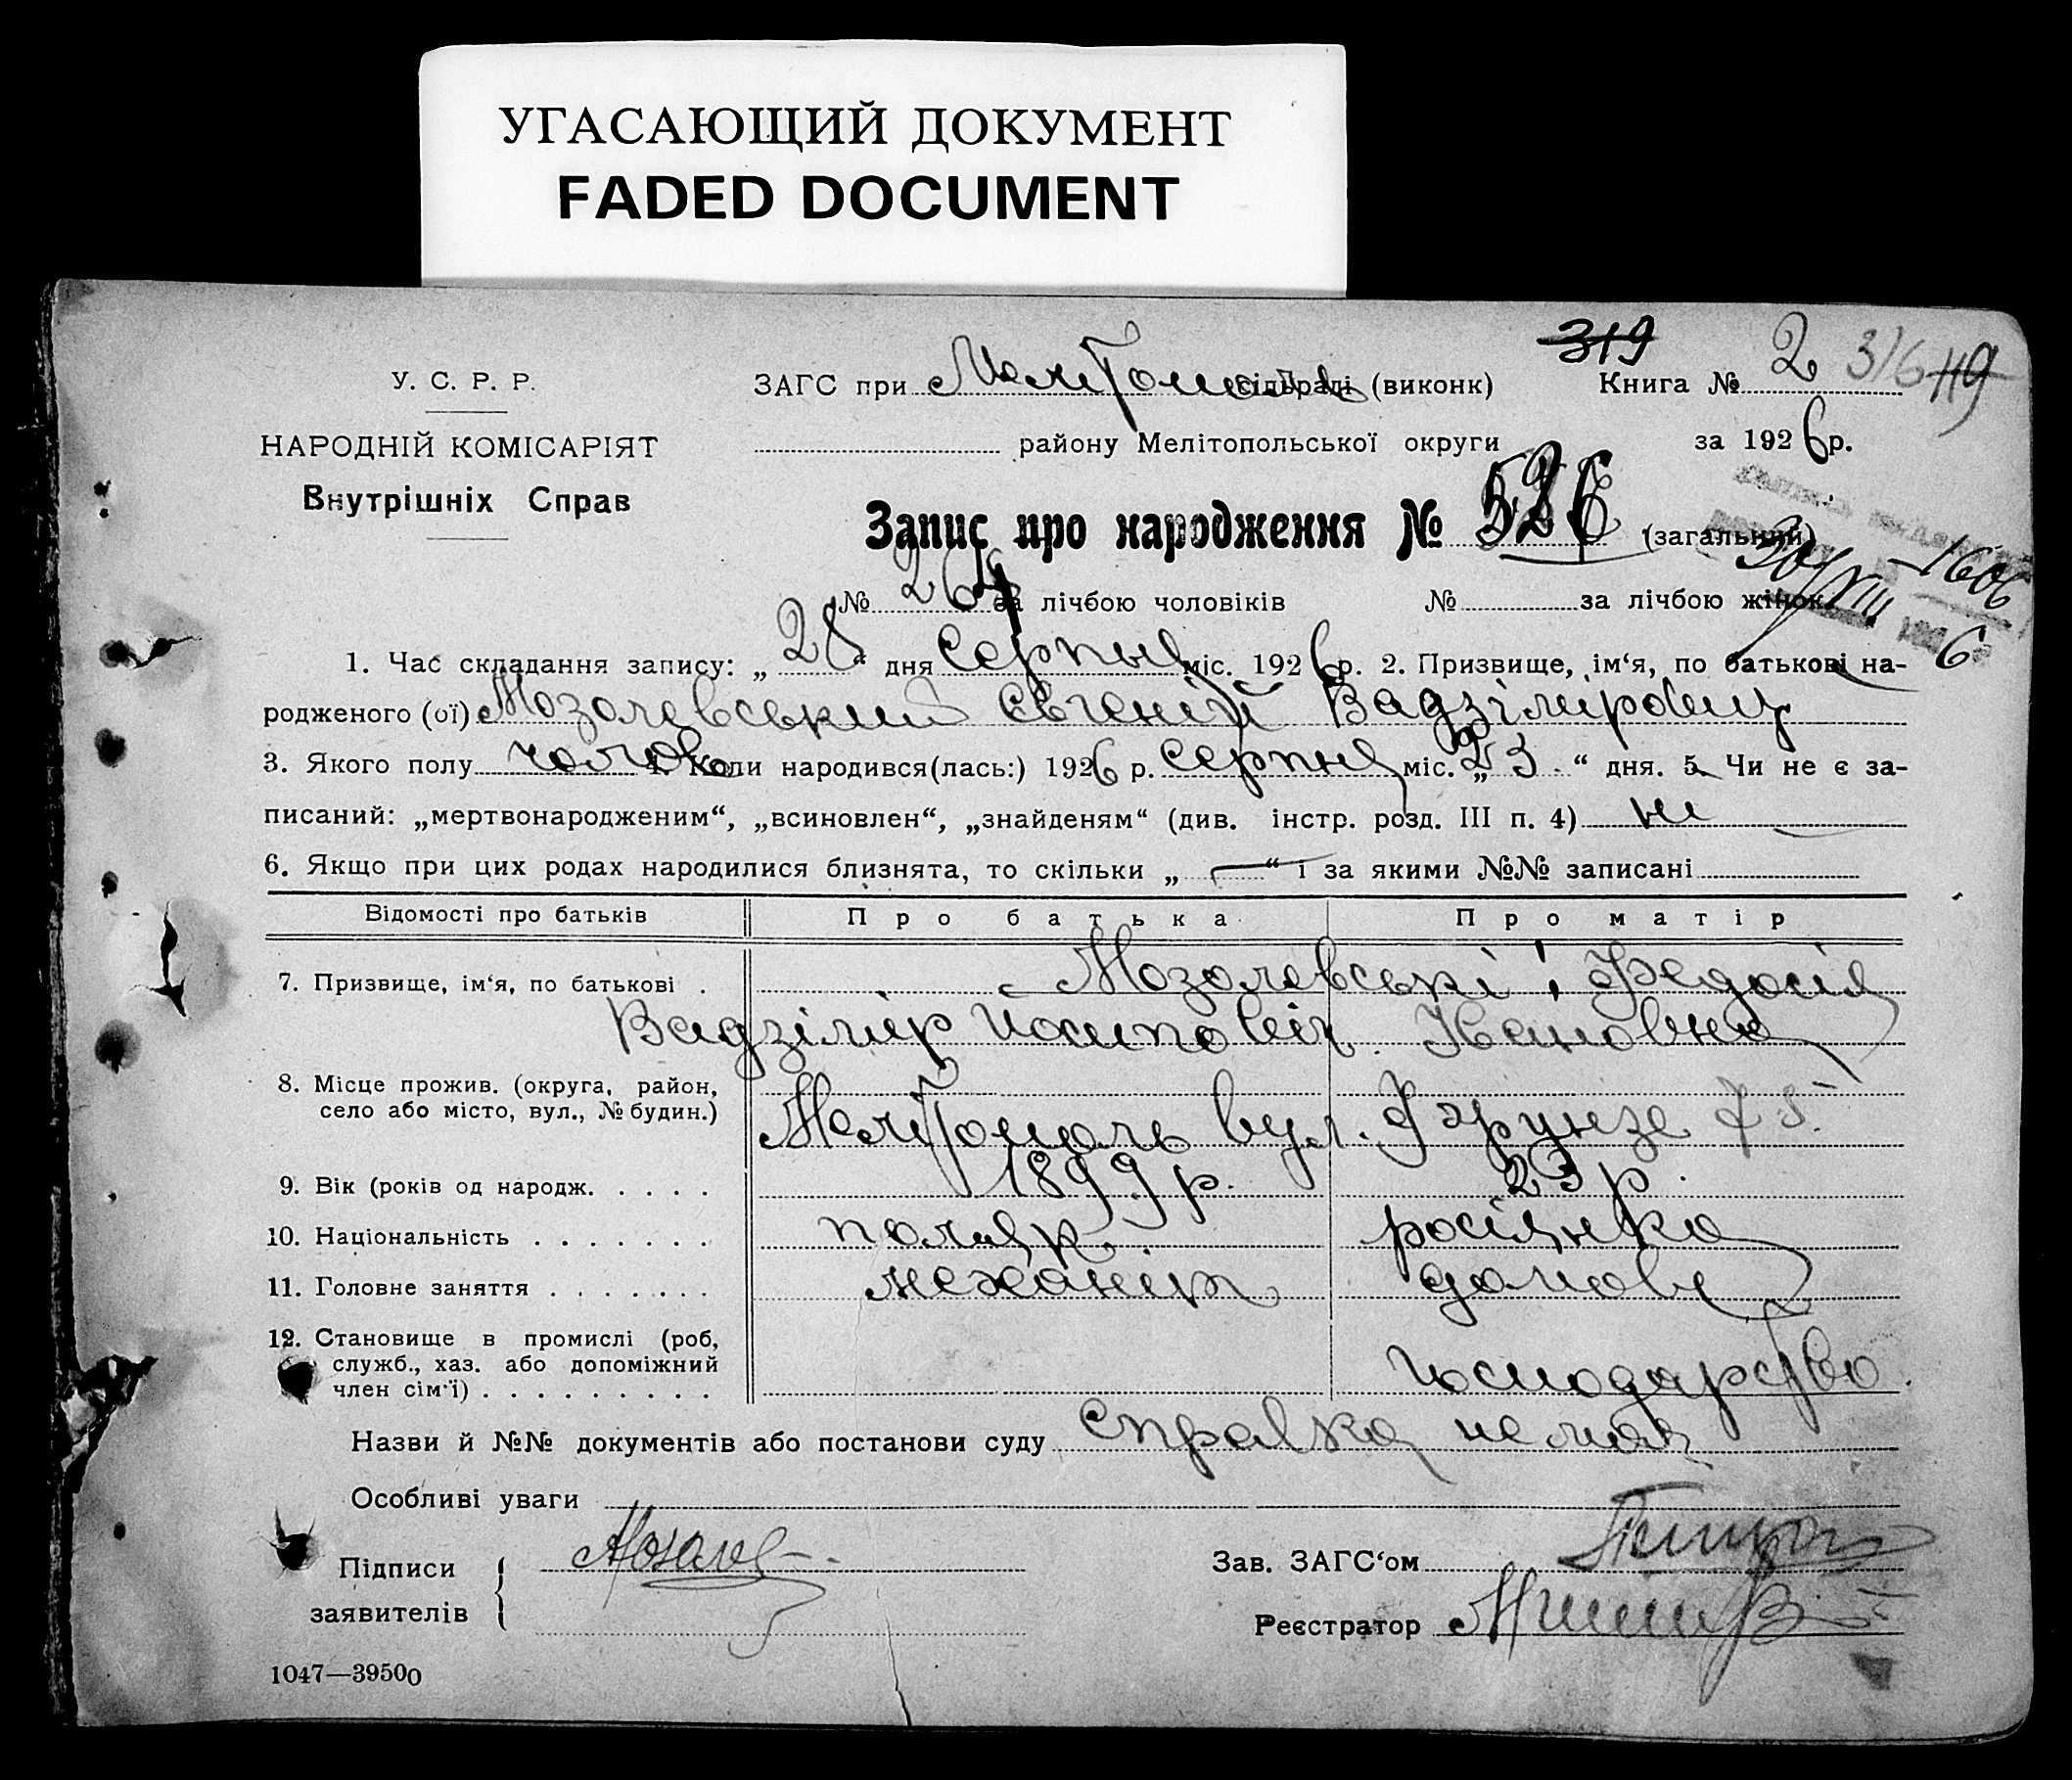 УГАСАЮЩИЙ ДОКУМЕНТ
FADED DOCUMENT
319
У. С. Р. Р.
ЗАГС при Мелітополь сільраді (виконк) Книга № 2 316 119
НАРОДНІЙ КОМІСАРІЯТ
району Мелітопольської округи за 1926 р.
Внутрішніх Справ
Запис про народження № 526 (загальний)
30/VIII – 1606
№ 264 за лічбою чоловіків № за лічбою жінок
6
1. Час складання запису: „28“ дня Серпня міс. 1926 р. 2. Призвище, ім‘я, по батькові на-
родженого (ої) Мозолевський Євгеній Вадзімірович
3. Якого полу чолов. 4. Коли народився(лась:) 1926 р. серпня міс. „23“ дня. 5. Чи не є за-
писаний: „мертвонародженим“, „всиновлен“, „знайденям“ (див. інстр. розд. III п. 4) ні
6. Якщо при цих родах народилися близнята, то скільки „—“ і за якими №№ записані
Відомості про батьків Про батька Про матір
7. Призвище, ім‘я, по батькові . Мозолевські і Федосія
Вадзімір Иосипович Івановна
8. Місце прожив. (округа, район,
село або місто, вул., № будин.) Мелітополь вул. Фрунзе
9. Вік (років од народж. . . . . 1899 р. 23 р.
10. Національність . . . . . . . поляк. росіянка
11. Головне заняття . . . . . . . механік домове
12. Становище в промислі (роб,
служб., хаз. або допоміжний господарство.
член сім‘ї) . . . . . . . . .
Назви й №№ документів або постанови суду Справка немає
Особливі уваги
Підписи
заявителів
Зав. ЗАГС‘ом
Реєстратор
1047—39500